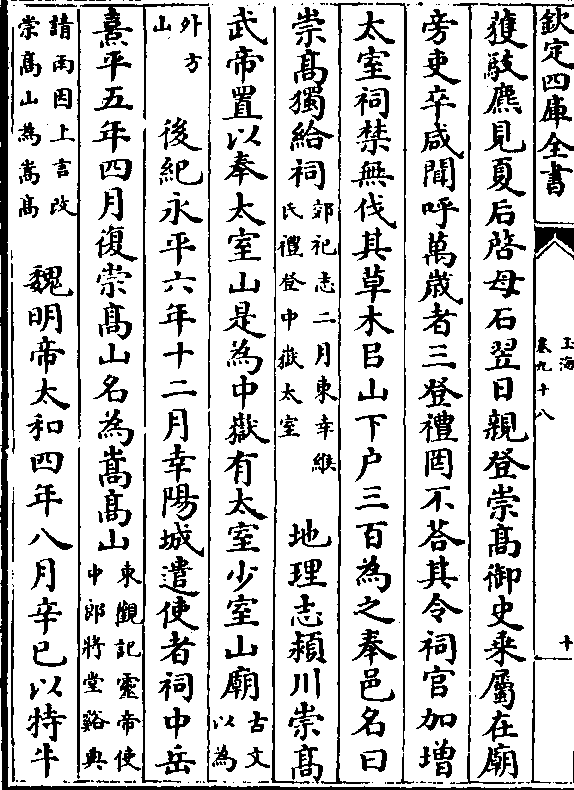 欽定四庫全書
玉海
卷九十八
十
獲駮麃見夏后啓母石翌日親登崇髙御史乗屬在廟
旁吏卒咸聞呼萬歳者三登禮罔不荅其令祠官加增
太室祠禁無伐其草木㠯山下户三百為之奉邑名曰
崇髙獨給祠郊祀志二月東幸緱氏禮登中嶽太室 地理志潁川崇髙
武帝置以奉太室山是為中嶽有太室少室山廟古文以為
外方山 後紀永平六年十二月幸陽城遣使者祠中岳
熹平五年四月復崇髙山名為嵩髙山東觀記靈帝使中郎將堂谿典
請雨因上言改崇髙山為嵩髙 魏明帝太和四年八月辛巳以特牛